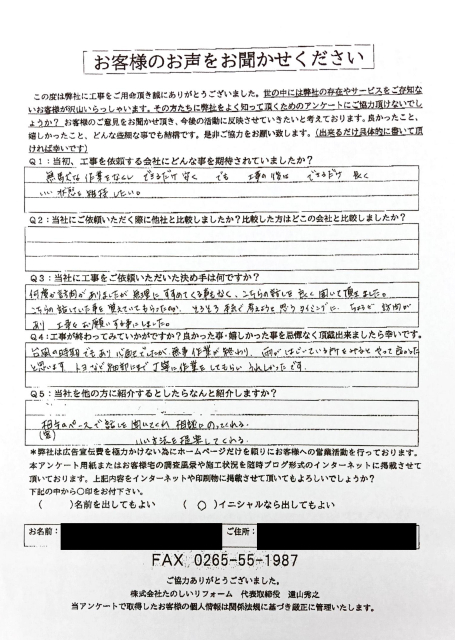 お客様のお声をお聞かせください
この度は弊社に工事をご用命頂き誠にありがとうございました。世の中には弊社の存在やサービスをご存知な
いお客様が沢山いらっしゃいます。その方たちに弊社をよく知って頂くためのアンケートにご協力頂けないでし
ょうか？ お客様のご意見をお聞かせ頂き、今後の活動に反映させていきたいと考えております。良かったこと、
嬉しかったこと、どんな些細な事でも結構です。是非ご協力をお願い致します。（出来るだけ具体的に書いて頂
ければ幸いです）
Q1：当初、工事を依頼する会社にどんな事を期待されていましたか？
作業をなくし できるだけ 安く でも 工事の後は できるだけ 長く
いい状態を維持したい。
Q2：当社にご依頼いただく際に他社と比較しましたか？比較した方はどこの会社と比較しましたか？
Q3：当社に工事をご依頼いただいた決め手は何ですか？
何度か訪問がありましたが 無理に すすめてくる事もなく、こちらの話しを 良く 聞いて頂きました。
こちらの話していた事を 覚えていてもらったのか、そろそろ 本気で 考えようと思う タイミングに、ちょうど 訪問が
あり 工事を お願いする事にしました。
Q4：工事が終わってみていかがですか？良かった事・嬉しかった事を忌憚なく頂戴出来ましたら幸いです。
台風の時期でもあり 心配でしたが 無事 作業が終わり、雨が はじいている所を みると やって良かった
と思います。トヨなど 細部にまで 丁寧に作業を してもらい うれしかったです。
Q5：当社を他の方に紹介するとしたらなんと紹介しますか？
相手のペースで 話しを 聞いてくれ 相談に のってくれる。
いい方法を提案してくれる。
＊弊社は広告宣伝費を極力かけない為にホームページだけを頼りにお客様への営業活動を行っております。
本アンケート用紙またはお客様宅の調査風景や施工状況を随時ブログ形式のインターネットに掲載させて
頂いております。上記内容をインターネットや印刷物に掲載させて頂いてもよろしいでしょうか？
下記の中から〇印をお付下さい。
（ ）名前を出してもよい （ ○ ）イニシャルなら出してもよい
お名前： ご住所：
FAX 0265-55-1987
ご協力ありがとうございました。
株式会社たのしいリフォーム 代表取締役 遠山秀之
当アンケートで取得したお客様の個人情報は関係法規に基づき厳正に管理いたします。